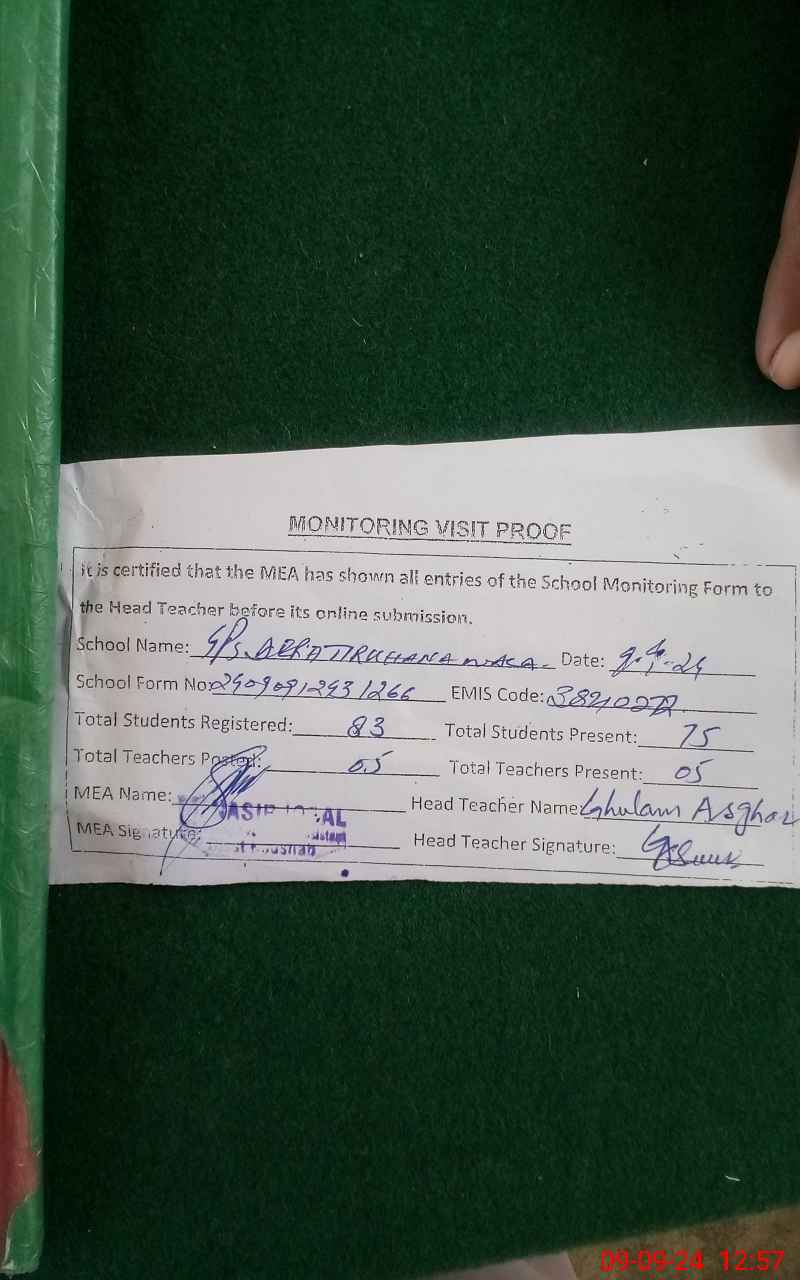 MONITORING VISIT PROOF
It is certified that the MEA has shown all entries of the School Monitoring Form to
the Head Teacher before its online submission.
School Name: GPS Date: 9-9-24
School Form No: EMIS Code:
Total Students Registered: 83 Total Students Present: 75
Total Teachers Posted: 05 Total Teachers Present: 05
MEA Name: Head Teacher Name: Ghulam Asghar
MEA Signature: Head Teacher Signature:
09-09-24 12:57